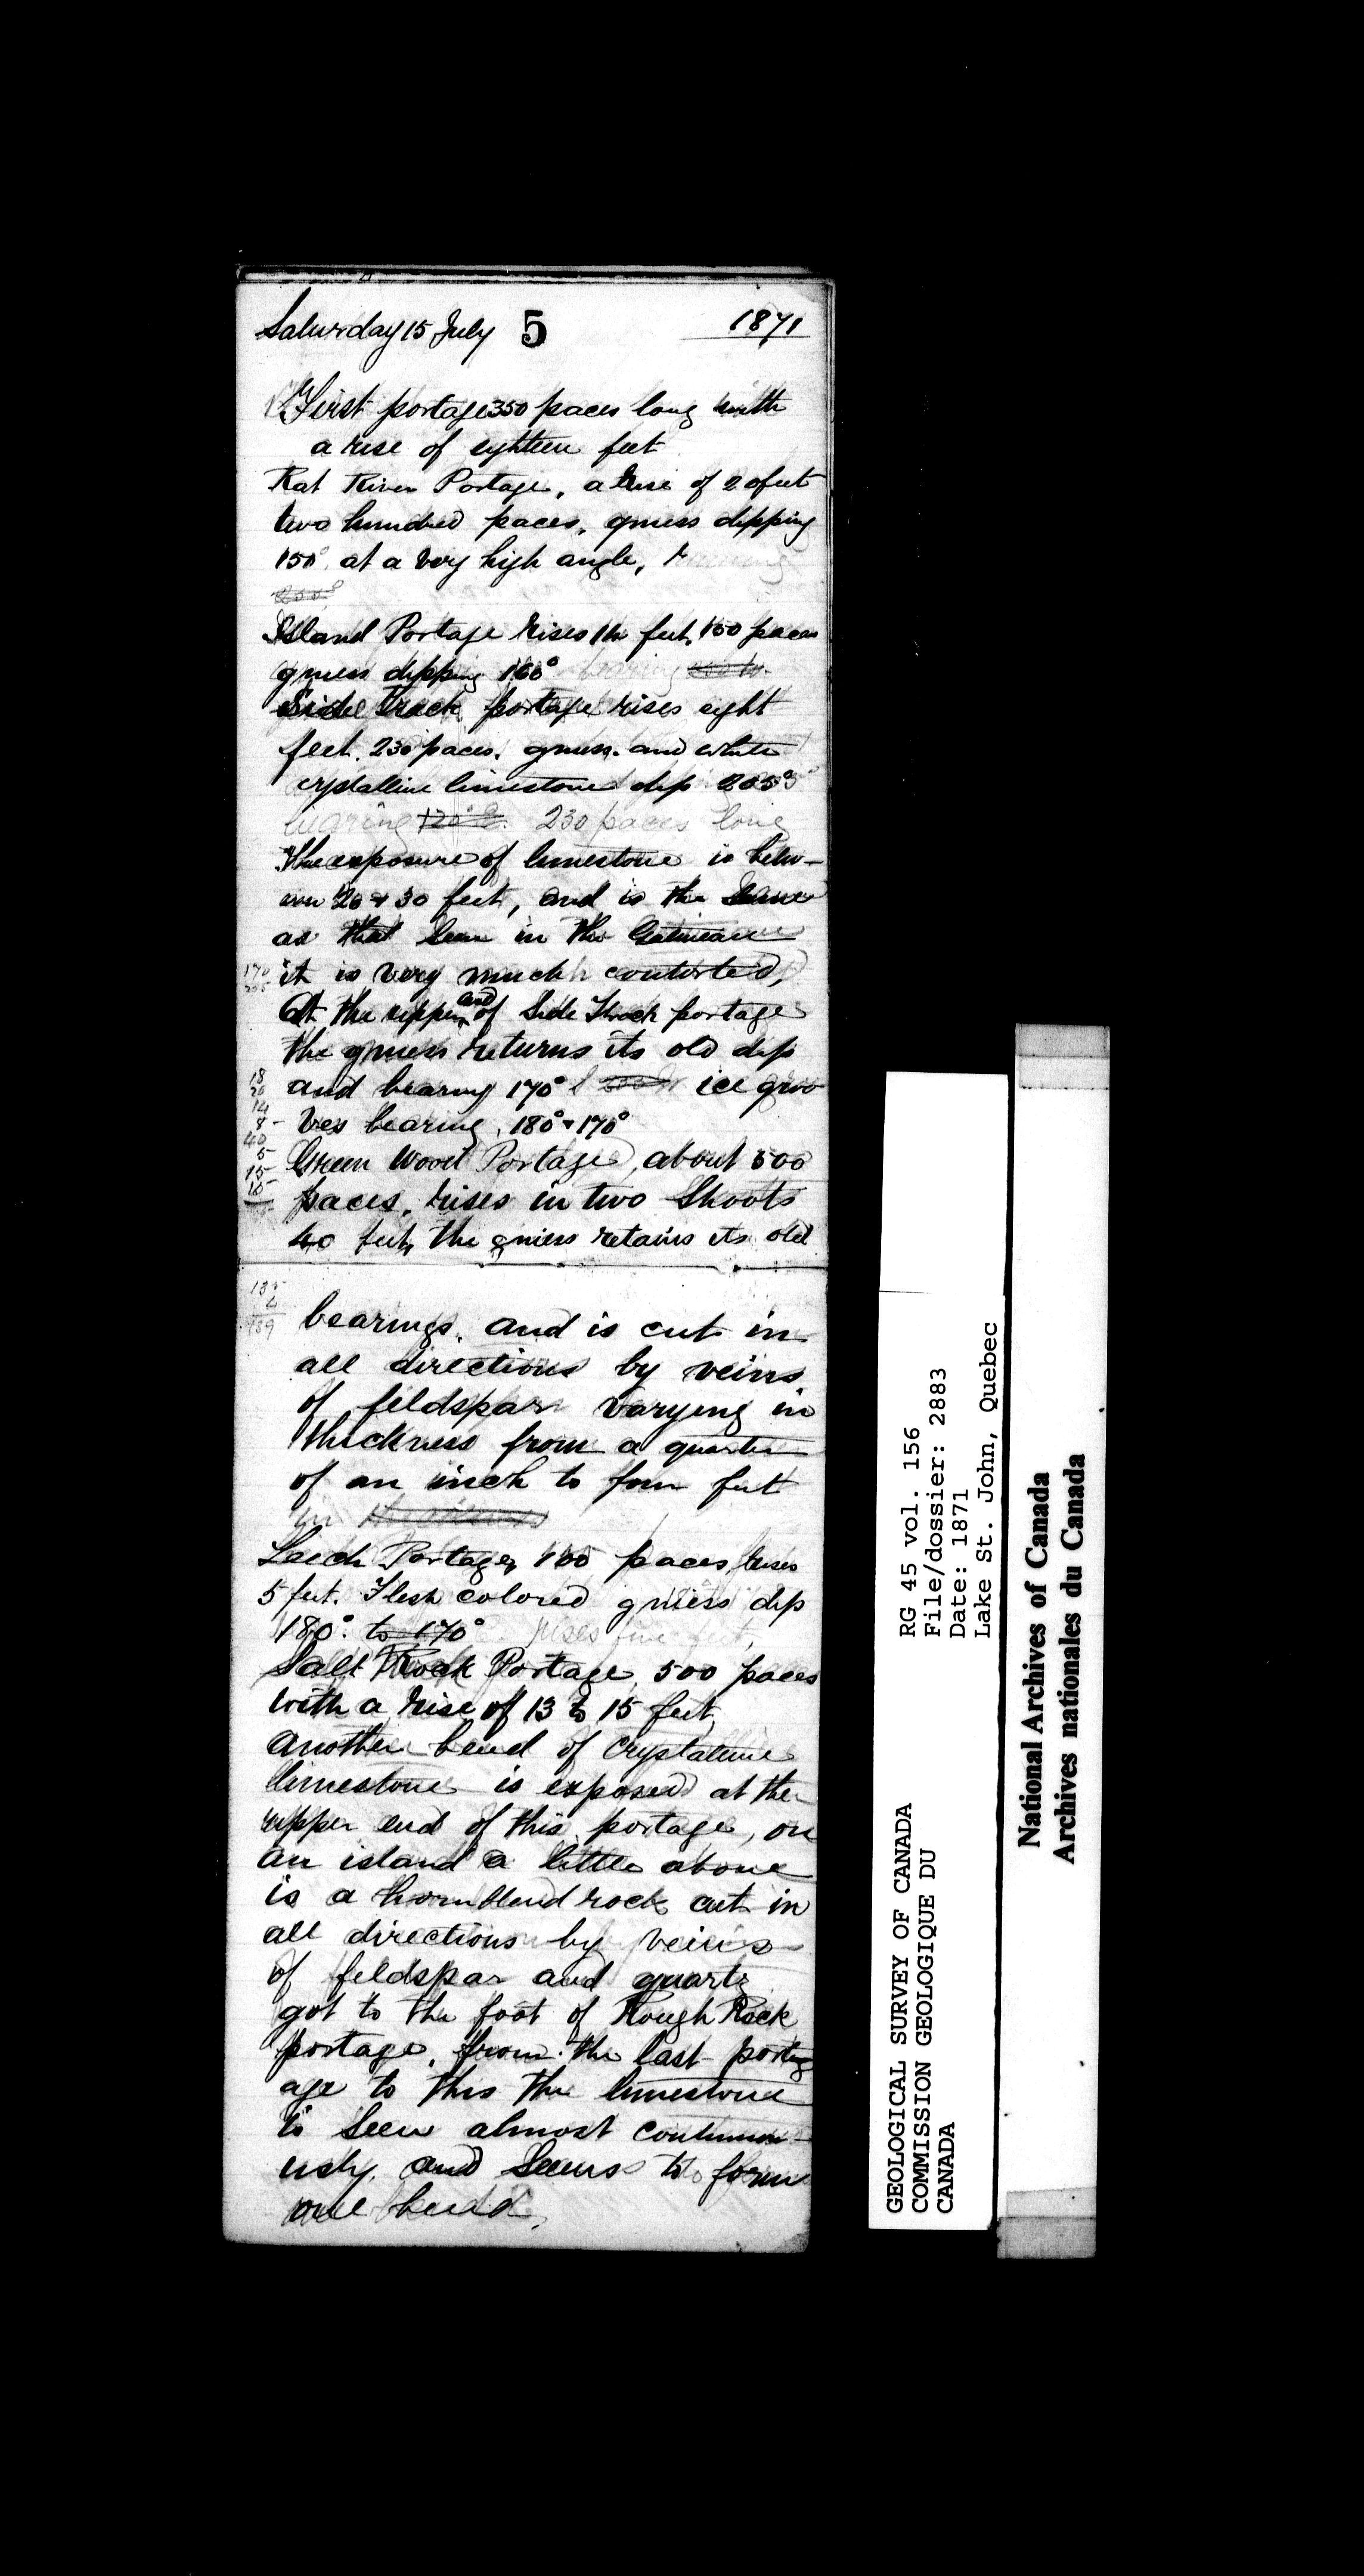 Saturday 15 July 5 1871
First portage 350 paces long with
a rise of eighteen feet
Rat River Portage, a rise of 20 feet
two hundred paces, gneiss dipping
150° at a very high angle,
Island Portage rises 14 feet, 150 paces
gneiss dipping 160° bearing
Side Track portage rises eight
feet. 230 paces. gneiss. and white
crystalline limestone dip 205°
bearing 120° 230 paces long
The exposure of limestone is betw-
een 20 & 30 feet, and is the same
as that seen in the Gatineau
170
205
it is very much contorted,
At the upper end of Side Track portage
the gneiss returns its old dip
and bearing 170° ice groo
ves bearing. 180° & 170°
18
20
14
8
40
5
15
15
Green Wood Portage, about 500
paces, rises in two Shoots
40 feet, the gneiss retains its old
135
4
139
bearings. and is cut in
all directions by veins
of feldspar varying in
thickness from a quarter
of an inch to four feet
in
Leech Portage, 100 paces, rises
5 feet. Flesh colored gneiss dip
180° to 170° rises five feet,
Salt Rock Portage, 500 paces
with a rise of 13 to 15 feet,
another bend of crystaline
limestone is exposed at the
upper end of this portage, on
an island a little above
is a hornblend rock cut in
all directions by veins
of feldspar and quartz
got to the foot of Rough Rock
portage, from the last port
age to this the limestone
is seen almost continuo-
usly. and seems to form
one bend.
GEOLOGICAL SURVEY OF CANADA
COMMISSION GEOLOGIQUE DU
CANADA
RG 45 vol. 156
File/dossier: 2883
Date: 1871
Lake St. John, Quebec
National Archives of Canada
Archives nationales du Canada